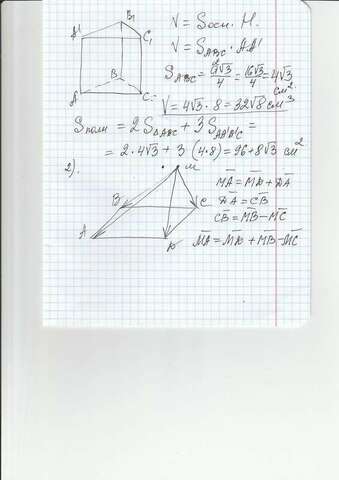 B₁
A¹
C₁
B
A
C
V = Sосн. H.
V = S_ABC · AA¹
S_ABC = 4²√3/4 = 16√3/4 = 4√3 см²
V = 4√3 · 8 = 32√8 см³
Sполн = 2S△ABC + 3S =
= 2 · 4√3 + 3 (4 · 8) = 96 + 8√3 см²
2).
M
B
C
A
MA = MD + DA
DA = CB
CB = MB − MC
MA = MD + MB − MC